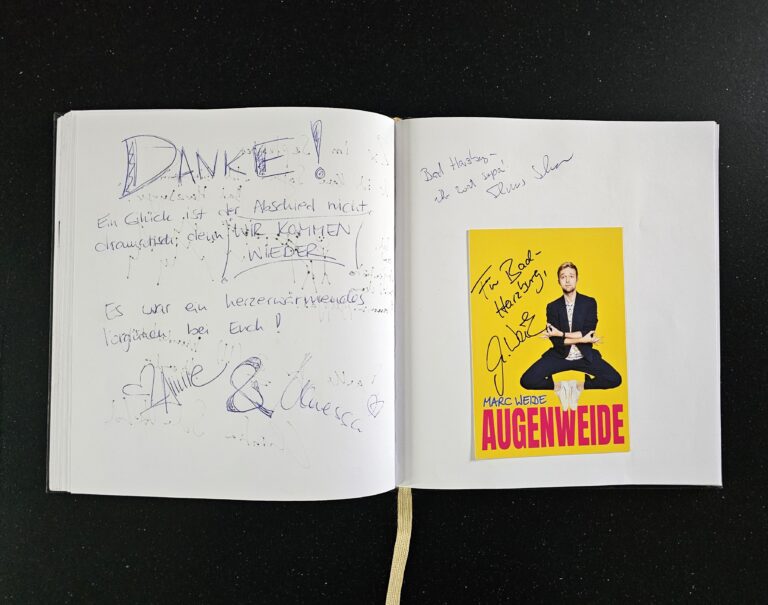 DANKE!
Ein Glück ist der Abschied nicht
dramatisch, denn WIR KOMMEN
WIEDER.
Es war ein herzerwärmendes
Vergnügen bei Euch!
&
Bad Harzburg –
Für Bad-
Harzburg,
MARC WEIDE
AUGENWEIDE